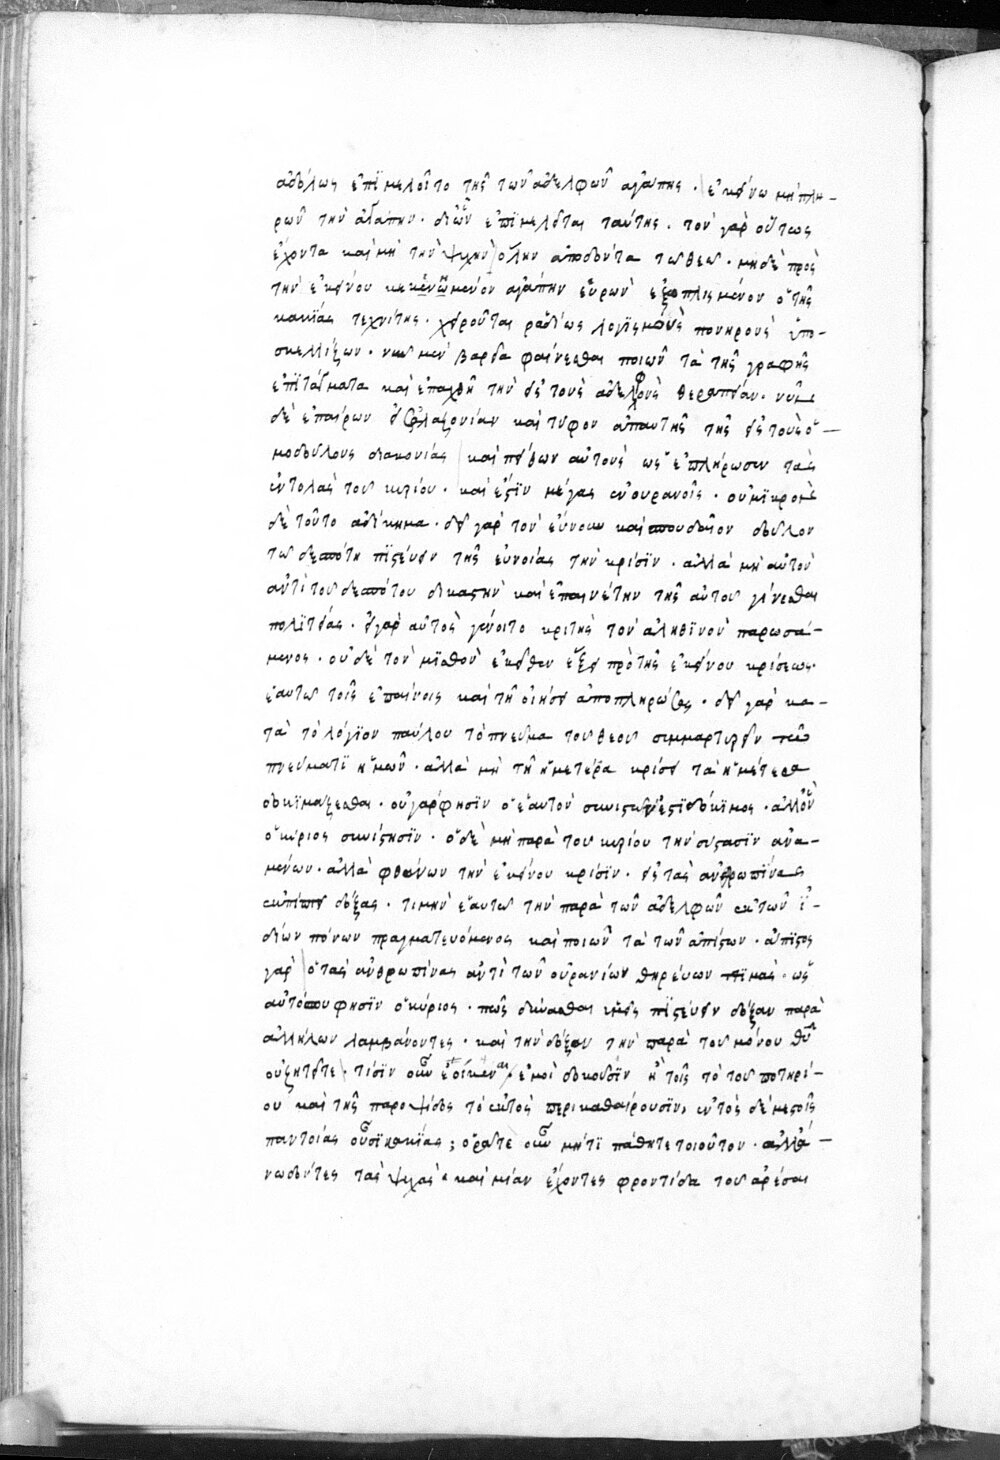 ἀδόλως ἐπιμελοῖτο τῆς τῶν ἀδελφῶν ἀγάπης. ἐκείνω μὴ πλη-
ρῶν τὴν ἀγάπην. δι' ὧν ἐπιμελεῖται ταύτης. τὸν γὰρ οὕτως
ἔχοντα καὶ μὴ τὴν ψυχὴν ὅλην ἀποδόντα τῶ θεῶ. μηδὲ πρὸς
τὴν ἐκείνου κεκενωμένον ἀγάπην εὑρὼν ἐξοπλισμένον ὁ τῆς
κακίας τεχνίτης. χειροῦται ῥαδίως λογισμοὺς πονηροὺς ὑπο-
σκελλίζων. νῦν μὲν βαρέα φαίνεσθαι ποιῶν τὰ τῆς γραφῆς
ἐπιτάγματα καὶ ἐπαχθῆ τὴν εἰς τοὺς ἀδελφοὺς θεραπείαν. νῦν
δὲ ἐπαίρων εἰς ἀλαζονίαν καὶ τύφον ἀπ' αυτῆς τῆς εἰς τοὺς ὁ-
μοδούλους διακονίας καὶ πείθων αὐτοὺς ὡς ἐπλήρωσαν τὰς
ἐντολὰς τοῦ κυρίου. καὶ ἐστὶν μέγας ἐν οὐρανοῖς. οὐ μικρὸν
δὲ τοῦτο ἀδίκημα. δεῖ γὰρ τὸν εὔνουν καὶ σπουδαῖον δοῦλον
τῶ δεσπότη πιστεύειν τῆς εὐνοίας τὴν κρίσιν. ἀλλὰ μὴ αὐτὸν
ἀντὶ τοῦ δεσπότου δικαστὴν καὶ ἐπαινέτην τῆς αὐτοῦ γίνεσθαι
πολιτείας. εἰ γὰρ αὐτὸς γένοιτο κριτὴς τὸν ἀληθινὸν παρωσά-
μενος. οὐδὲ τὸν μισθὸν ἐκεῖθεν ἕξει πρὸ τῆς ἐκείνου κρίσεως.
ἑαυτῶ τοῖς ἐπαίνοις καὶ τῆ οἰήσει ἀποπληρώσας. δεῖ γὰρ κα-
τὰ τὸ λόγιον παύλου τὸ πνεῦμα τοῦ θεοῦ συμμαρτυρεῖν τῶ
πνεύματι ἡμῶν. ἀλλὰ μὴ τῆ ἡμετέρα κρίσει τὰ ἡμέτερα
δοκιμάζεσθαι. οὐ γάρ φησιν ὁ ἑαυτὸν συνιστῶν ἐστι δόκιμος. ἀλλ' ὃν
ὁ κύριος συνίστησιν. ὁ δὲ μὴ παρὰ τοῦ κυρίου τὴν σύστασιν ἀνα-
μένων. ἀλλὰ φθάνων τὴν ἐκείνου κρίσιν. εἰς τὰς ἀνθρωπίνας
ἐκπίπτει δόξας. τιμὴν ἑαυτῶ τὴν παρὰ τῶν ἀδελφῶν ἐκ τῶν ἰ-
δίων πόνων πραγματευόμενος καὶ ποιῶν τὰ τῶν ἀπίστων. ἄπιστος
γὰρ ὁ τὰς ἀνθρωπίνας ἀντὶ τῶν οὐρανίων θηρεύων τιμάς. ὥς
αὐτόπου φησιν ὁ κύριος. πῶς δύνασθαι ὑμεῖς πιστεύειν δόξαν παρὰ
ἀλλήλων λαμβάνοντες. καὶ τὴν δόξαν τὴν παρὰ τοῦ μόνου θυ
οὐ ζητεῖτε. τίσιν οὖν ἐοίκεναι ἐμοὶ δοκοῦσιν ἢ τοῖς τὸ τοῦ ποτηρί-
ου καὶ τῆς παροψίδος τὸ ἐκτὸς περικαθαίρουσιν, ἐντὸς δὲ μεστοῖς
παντοίας οὖσι κακίας; ὁρᾶτε οὖν μήτι πάθητε τοιοῦτον. ἀλλὰ
νωθέντες τὰς ψυχὰς καὶ μίαν ἔχοντες φροντίδα τοῦ ἀρέσαι